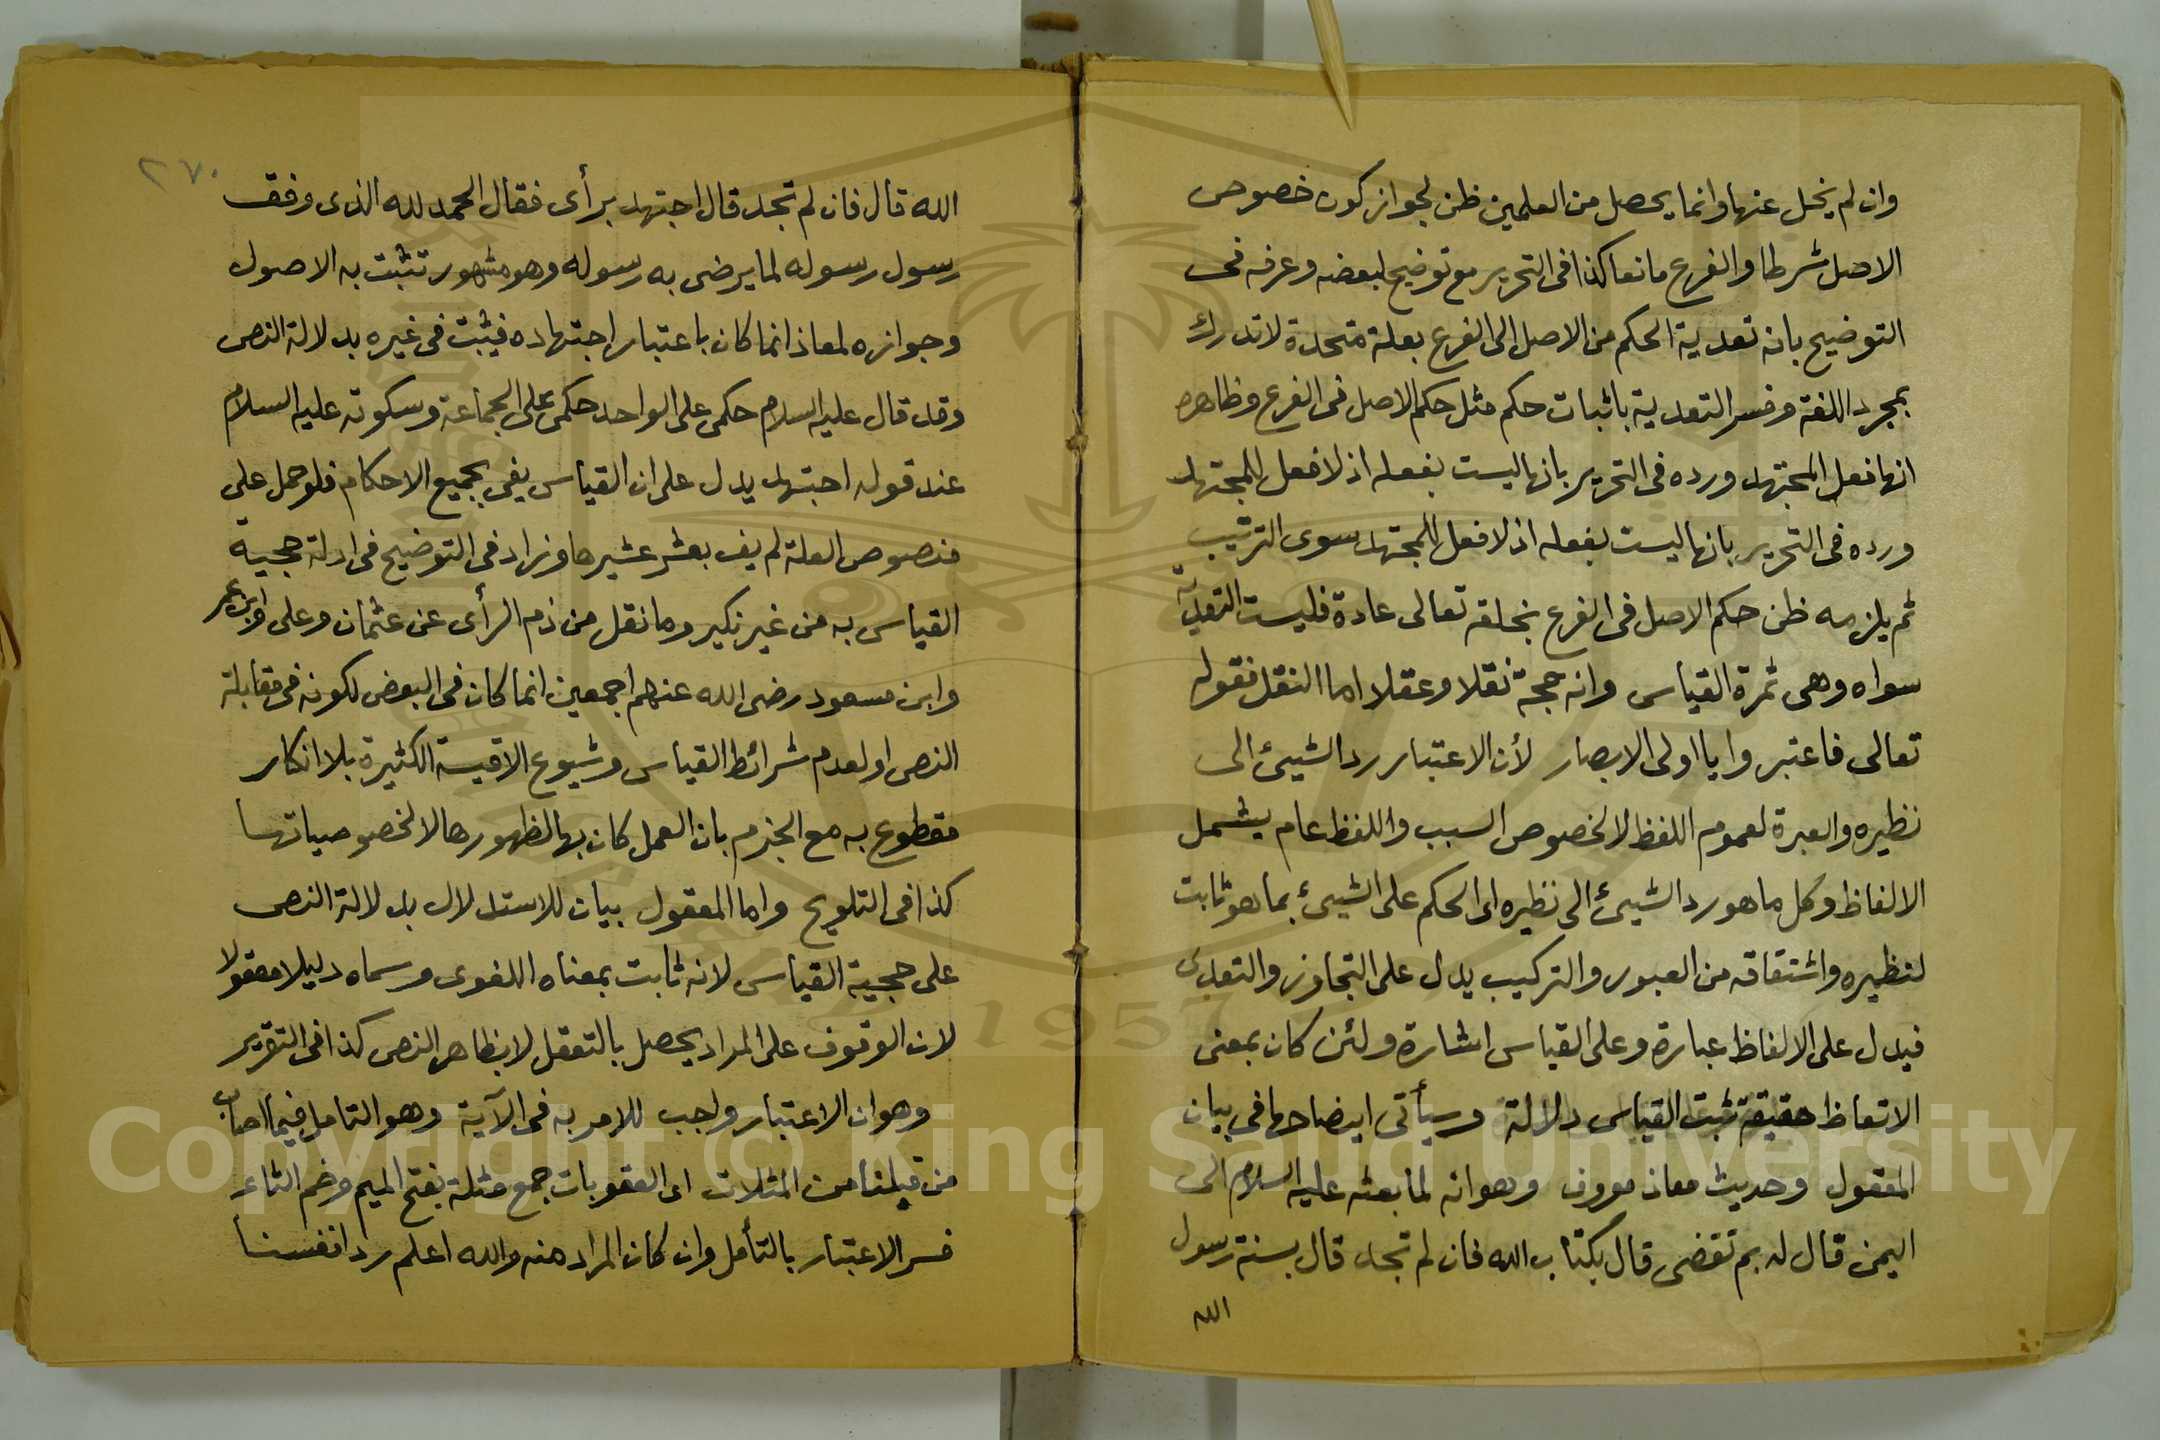 وان لم يخل عنها وانما يحصل من العلمين ظن لجواز كون خصوص
الاصل شرطا والفرع مانعا كذا في التحرير مع توضيح لبعضه وعرفه في
التوضيح بانه تعدية الحكم من الاصل الى الفرع بعلة متحدة لا تدرك
بمجرد اللغة وفسر التعدية باثبات حكم مثل حكم الاصل في الفرع وظاهره
انها فعل المجتهد ورده في التحرير بانها ليست بفعله اذ لا فعل للمجتهد
ورده في التحرير بانها ليست بفعله اذ لا فعل للمجتهد سوى الترتيب
ثم يلزمه ظن حكم الاصل في الفرع بخلقه تعالى عادة فليست التعدية
سواه وهى ثمرة القياس وانه حجة نقلا وعقلا اما النقل فقوله
تعالى فاعتبروا يا اولى الابصار لأن الاعتبار رد الشيئ الى
نظيره والعبرة لعموم اللفظ لا لخصوص السبب واللفظ عام يشمل
الالفاظ وكل ما هو رد الشيئ الى نظيره اى الحكم على الشيئ بما هو ثابت
لنظيره واشتقاقه من العبور والتركيب يدل على التجاوز والتعدى
فيدل على الالفاظ عبارة وعلى القياس اشارة ولئن كان بمعنى
الاتعاظ حقيقة ثبت القياس دلالة وسيأتى ايضاحها في بيان
المعقول وحديث معاذ معروف وهو انه لما بعثه عليه السلام الى
اليمن قال له بم تقضى قال بكتاب الله فان لم تجد قال بسنة رسول
الله
٢٧٠
الله قال فان لم تجد قال اجتهد برأى فقال الحمد لله الذى وفق
رسول رسوله لما يرضى به رسوله وهو مشهور تثبت به الاصول
وجوازه لمعاذ انما كان باعتبار اجتهاده فيثبت في غيره بدلالة النص
وقد قال عليه السلام حكمى على الواحد حكمى على الجماعة وسكوته عليه السلام
عند قوله اجتهد يدل على ان القياس يفى بجميع الاحكام فلو حمل على
منصوص العلة لم يف بعشر عشيرها وزاد في التوضيح في ادلة حجية
القياس به من غير نكير وما نقل من ذم الرأى عن عثمان وعلى وابن عمر
وابن مسعود رضى الله عنهم اجمعين انما كان في البعض لكونه في مقابلة
النص او لعدم شرائط القياس وشيوع الاقيسة الكثيرة بلا انكار
مقطوع به مع الجزم بان العمل كان بها لظهورها لا لخصوصياتها
كذا في التلويح واما المعقول بيان للاستدلال بدلالة النص
على حجية القياس لانه ثابت بمعناه اللغوى وسماه دليلا معقولا
لان الوقوف على المراد يحصل بالتعقل لا بظاهر النص كذا في التقرير
وهو ان الاعتبار واجب للامر به في الآية وهو التامل فيما اصاب
من قبلنا من المثلات اى العقوبات جمع مثلة بفتح الميم وضم الثاء
فسر الاعتبار بالتأمل وان كان المراد منه والله اعلم رد انفسنا
1957
Copyright © King Saud University